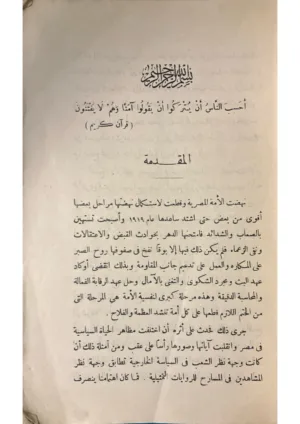 بسم الله الرحمن الرحيم
أحسب الناس أن يتركوا أن يقولوا آمنا وهم لا يفتنون
( قرآن كريم )
المقدمة
نهضت الأمة المصرية وقطعت لاستكمال نهضتها مراحل بعضها
أقوى من بعض حتى اشتد ساعدها عام ١٩١٩ وأصبحت تستهين
بالصعاب والشدائد فامتحنها الدهر بحوادث القبض والاعتقالات
ونفى الزعماء. فلم يكن ذلك فيها إلا بوقا نفخ فى صفوفها روح الصبر
على المكاره والعمل على تدعيم جانب المقاومة وبذلك انقضى أو كاد
عهد البث ومجرد الشكوى والتغنى بالآمال وحل عهد الرقابة الفعالة
والحماسة الدقيقة وهذه مرحلة كبرى لنفسية الأمة هى المرحلة التى
من الحتم اللازم قطعها على كل أمة تنشد العظمة والفلاح.
جرى ذلك فحدث على أثره أن اختلفت مظاهر الحياة السياسية
فى مصر وانقلبت آياتها وصورها رأسا على عقب ومن أمثلة ذلك أن
كانت وجهة نظر الشعب فى السياسة الخارجية تطابق وجهة نظر
المشاهدين فى المسارح للروايات التمثيلية. فما كان اهتمامنا ينصرف